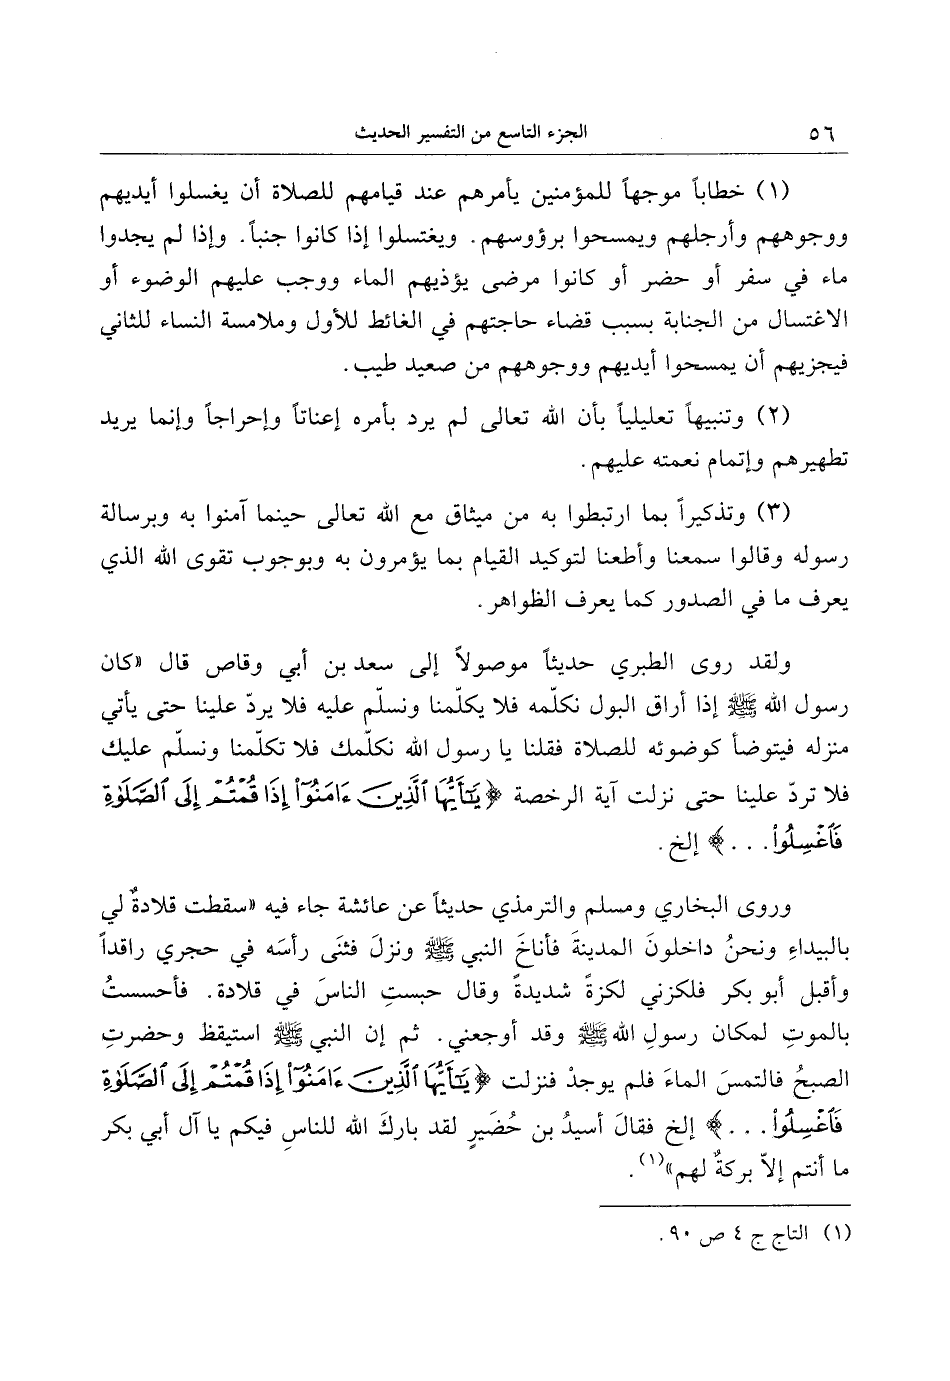 ٥٦ الجزء التاسع من التفسير الحديث
(١) خطاباً موجهاً للمؤمنين يأمرهم عند قيامهم للصلاة أن يغسلوا أيديهم
ووجوههم وأرجلهم ويمسحوا برؤوسهم. ويغتسلوا إذا كانوا جنباً. وإذا لم يجدوا
ماء في سفر أو حضر أو كانوا مرضى يؤذيهم الماء ووجب عليهم الوضوء أو
الاغتسال من الجنابة بسبب قضاء حاجتهم في الغائط للأول وملامسة النساء للثاني
فيجزيهم أن يمسحوا أيديهم ووجوههم من صعيد طيب.
(٢) وتنبيهاً تعليلياً بأن الله تعالى لم يرد بأمره إعناتاً وإحراجاً وإنما يريد
تطهيرهم وإتمام نعمته عليهم.
(٣) وتذكيراً بما ارتبطوا به من ميثاق مع الله تعالى حينما آمنوا به وبرسالة
رسوله وقالوا سمعنا وأطعنا لتوكيد القيام بما يؤمرون به وبوجوب تقوى الله الذي
يعرف ما في الصدور كما يعرف الظواهر.
ولقد روى الطبري حديثاً موصولاً إلى سعد بن أبي وقاص قال «كان
رسول الله ﷺ إذا أراق البول نكلّمه فلا يكلّمنا ونسلّم عليه فلا يردّ علينا حتى يأتي
منزله فيتوضأ كوضوئه للصلاة فقلنا يا رسول الله نكلّمك فلا تكلّمنا ونسلّم عليك
فلا تردّ علينا حتى نزلت آية الرخصة ﴿يَٰٓأَيُّهَا ٱلَّذِينَ ءَامَنُوٓا۟ إِذَا قُمْتُمْ إِلَى ٱلصَّلَوٰةِ
فَٱغْسِلُوا۟. . .﴾ إلخ.
وروى البخاري ومسلم والترمذي حديثاً عن عائشة جاء فيه «سقطت قلادةٌ لي
بالبيداءِ ونحنُ داخلونَ المدينةَ فأناخَ النبي ﷺ ونزلَ فثنَى رأسَه في حجري راقداً
وأقبل أبو بكر فلكزني لكزةً شديدةً وقال حبستِ الناسَ في قلادة. فأحسستُ
بالموتِ لمكان رسولِ الله ﷺ وقد أوجعني. ثم إن النبي ﷺ استيقظ وحضرتِ
الصبحُ فالتمسَ الماءَ فلم يوجدْ فنزلت ﴿يَٰٓأَيُّهَا ٱلَّذِينَ ءَامَنُوٓا۟ إِذَا قُمْتُمْ إِلَى ٱلصَّلَوٰةِ
فَٱغْسِلُوا۟. . .﴾ إلخ فقالَ أسيدُ بن حُضَيرٍ لقد باركَ الله للناسِ فيكم يا آل أبي بكر
ما أنتم إلاّ بركةٌ لهم»(١).
(١) التاج ج ٤ ص ٩٠.